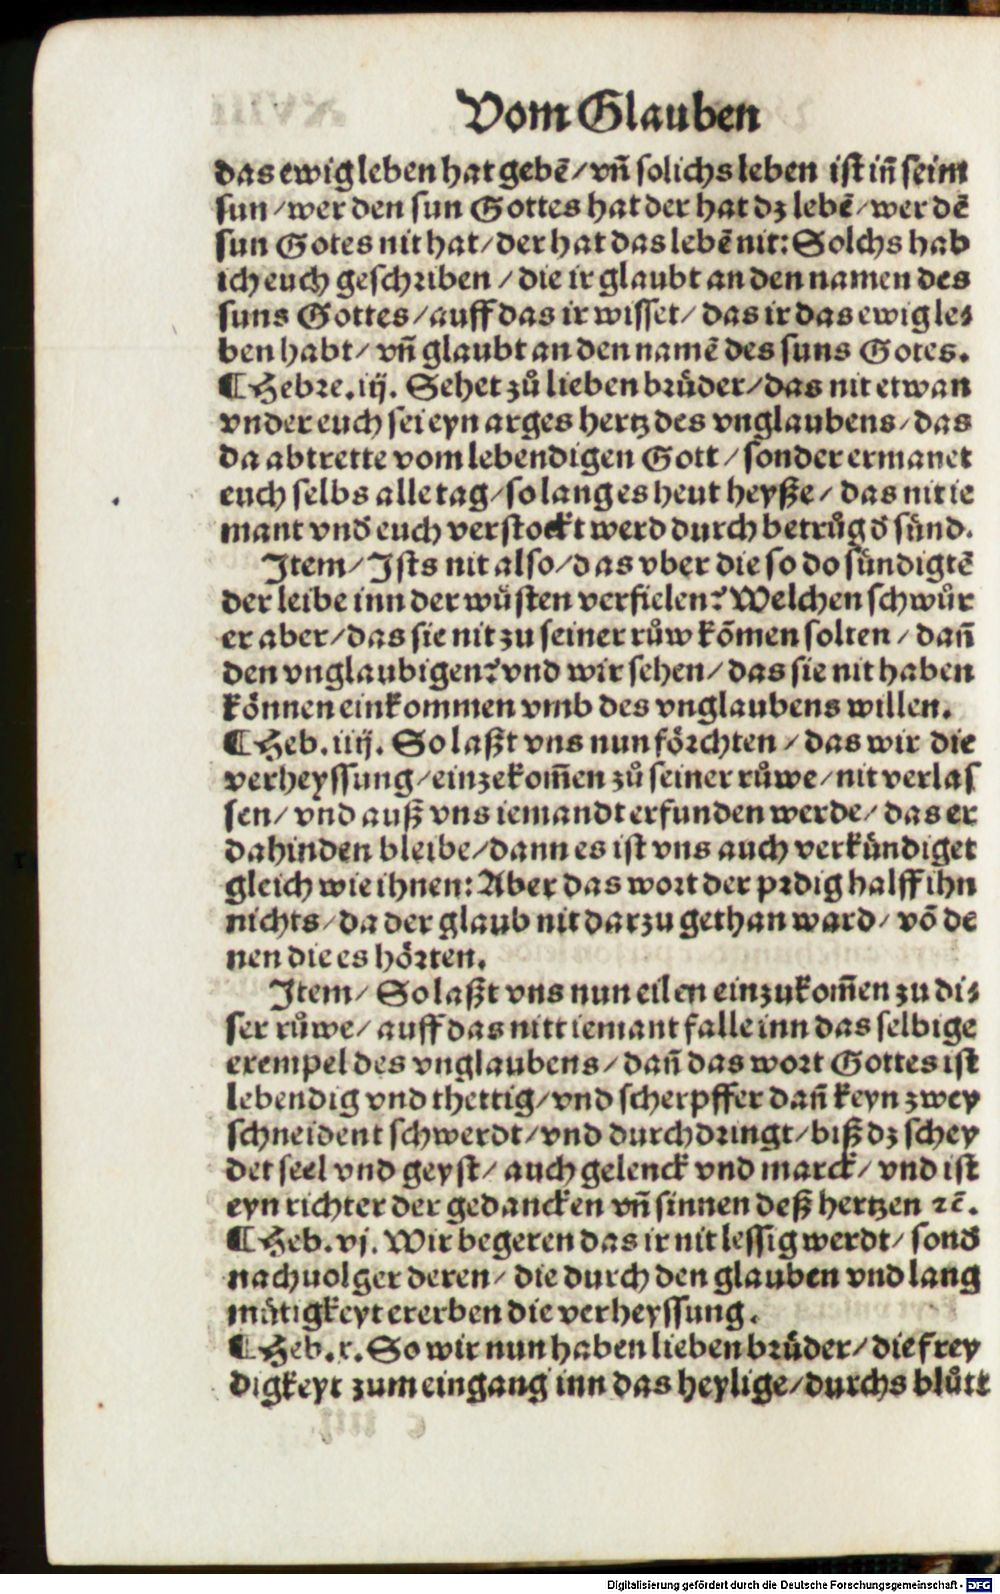 Vom Glauben
das ewig leben hat gebē/ vñ solichs leben ist iñ seim
sun/ wer den sun Gottes hat der hat dz lebē/ wer dē
sun Gotes nit hat/ der hat das lebē nit: Solchs hab
ich euch geschriben/ die ir glaubt an den namen des
suns Gottes/ auff das ir wisset/ das ir das ewig le-
ben habt/ vñ glaubt an den namē des suns Gotes.
¶ Hebre. iij. Sehet zů lieben brüder/ das nit etwan
vnder euch sei eyn arges hertz des vnglaubens/ das
da abtrette vom lebendigen Gott/ sonder ermanet
euch selbs alle tag/ so lang es heut heyße/ das nit ie
mant vnđ euch verstockt werd durch betrůg đ sünd.
Item/ Ists nit also/ das vber die so do sündigtē
der leibe inn der wüsten verfielen? Welchen schwůr
er aber/ das sie nit zu seiner růw kõmen solten/ dañ
den vnglaubigen? vnd wir sehen/ das sie nit haben
können einkommen vmb des vnglaubens willen.
¶ Heb. iiij. So laßt vns nun förchten/ das wir die
verheyssung/ einzekom̃en zů seiner růwe/ nit verlas
sen/ vnd auß vns iemandt erfunden werde/ das er
dahinden bleibe/ dann es ist vns auch verkündiget
gleich wie ihnen: Aber das wort der prdig halff ihn
nichts/ da der glaub nit darzu gethan ward/ võ de
nen die es hörten.
Item/ So laßt vns nun eilen einzukom̃en zu di-
ser růwe/ auff das nitt iemant falle inn das selbige
exempel des vnglaubens/ dañ das wort Gottes ist
lebendig vnd thettig/ vnd scherpffer dañ keyn zwey
schneident schwerdt/ vnd durchdringt/ biß dz schey
det seel vnd geyst/ auch gelenck vnd marck/ vnd ist
eyn richter der gedancken vñ sinnen deß hertzen ꝛc̄.
¶ Heb. vj. Wir begeren das ir nit lessig werdt/ sonđ
nachuolger deren/ die durch den glauben vnd lang
mütigkeyt ererben die verheyssung.
¶ Heb. x. So wir nun haben lieben brüder/ die frey
digkeyt zum eingang inn das heylige/ durchs blůtt
Digitalisierung gefördert durch die Deutsche Forschungsgemeinschaft - DFG